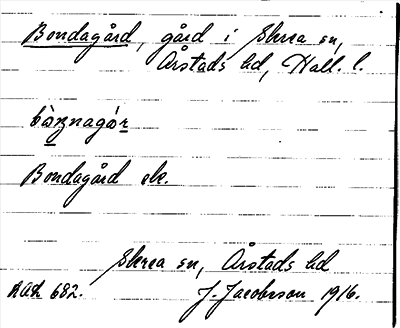 Bondagård, gård i Skrea sn,
Årstads hd, Hall. l.
Bondagård sk.
Skrea sn, Årstads hd
AAH 682. J. Jacobsson 1916.